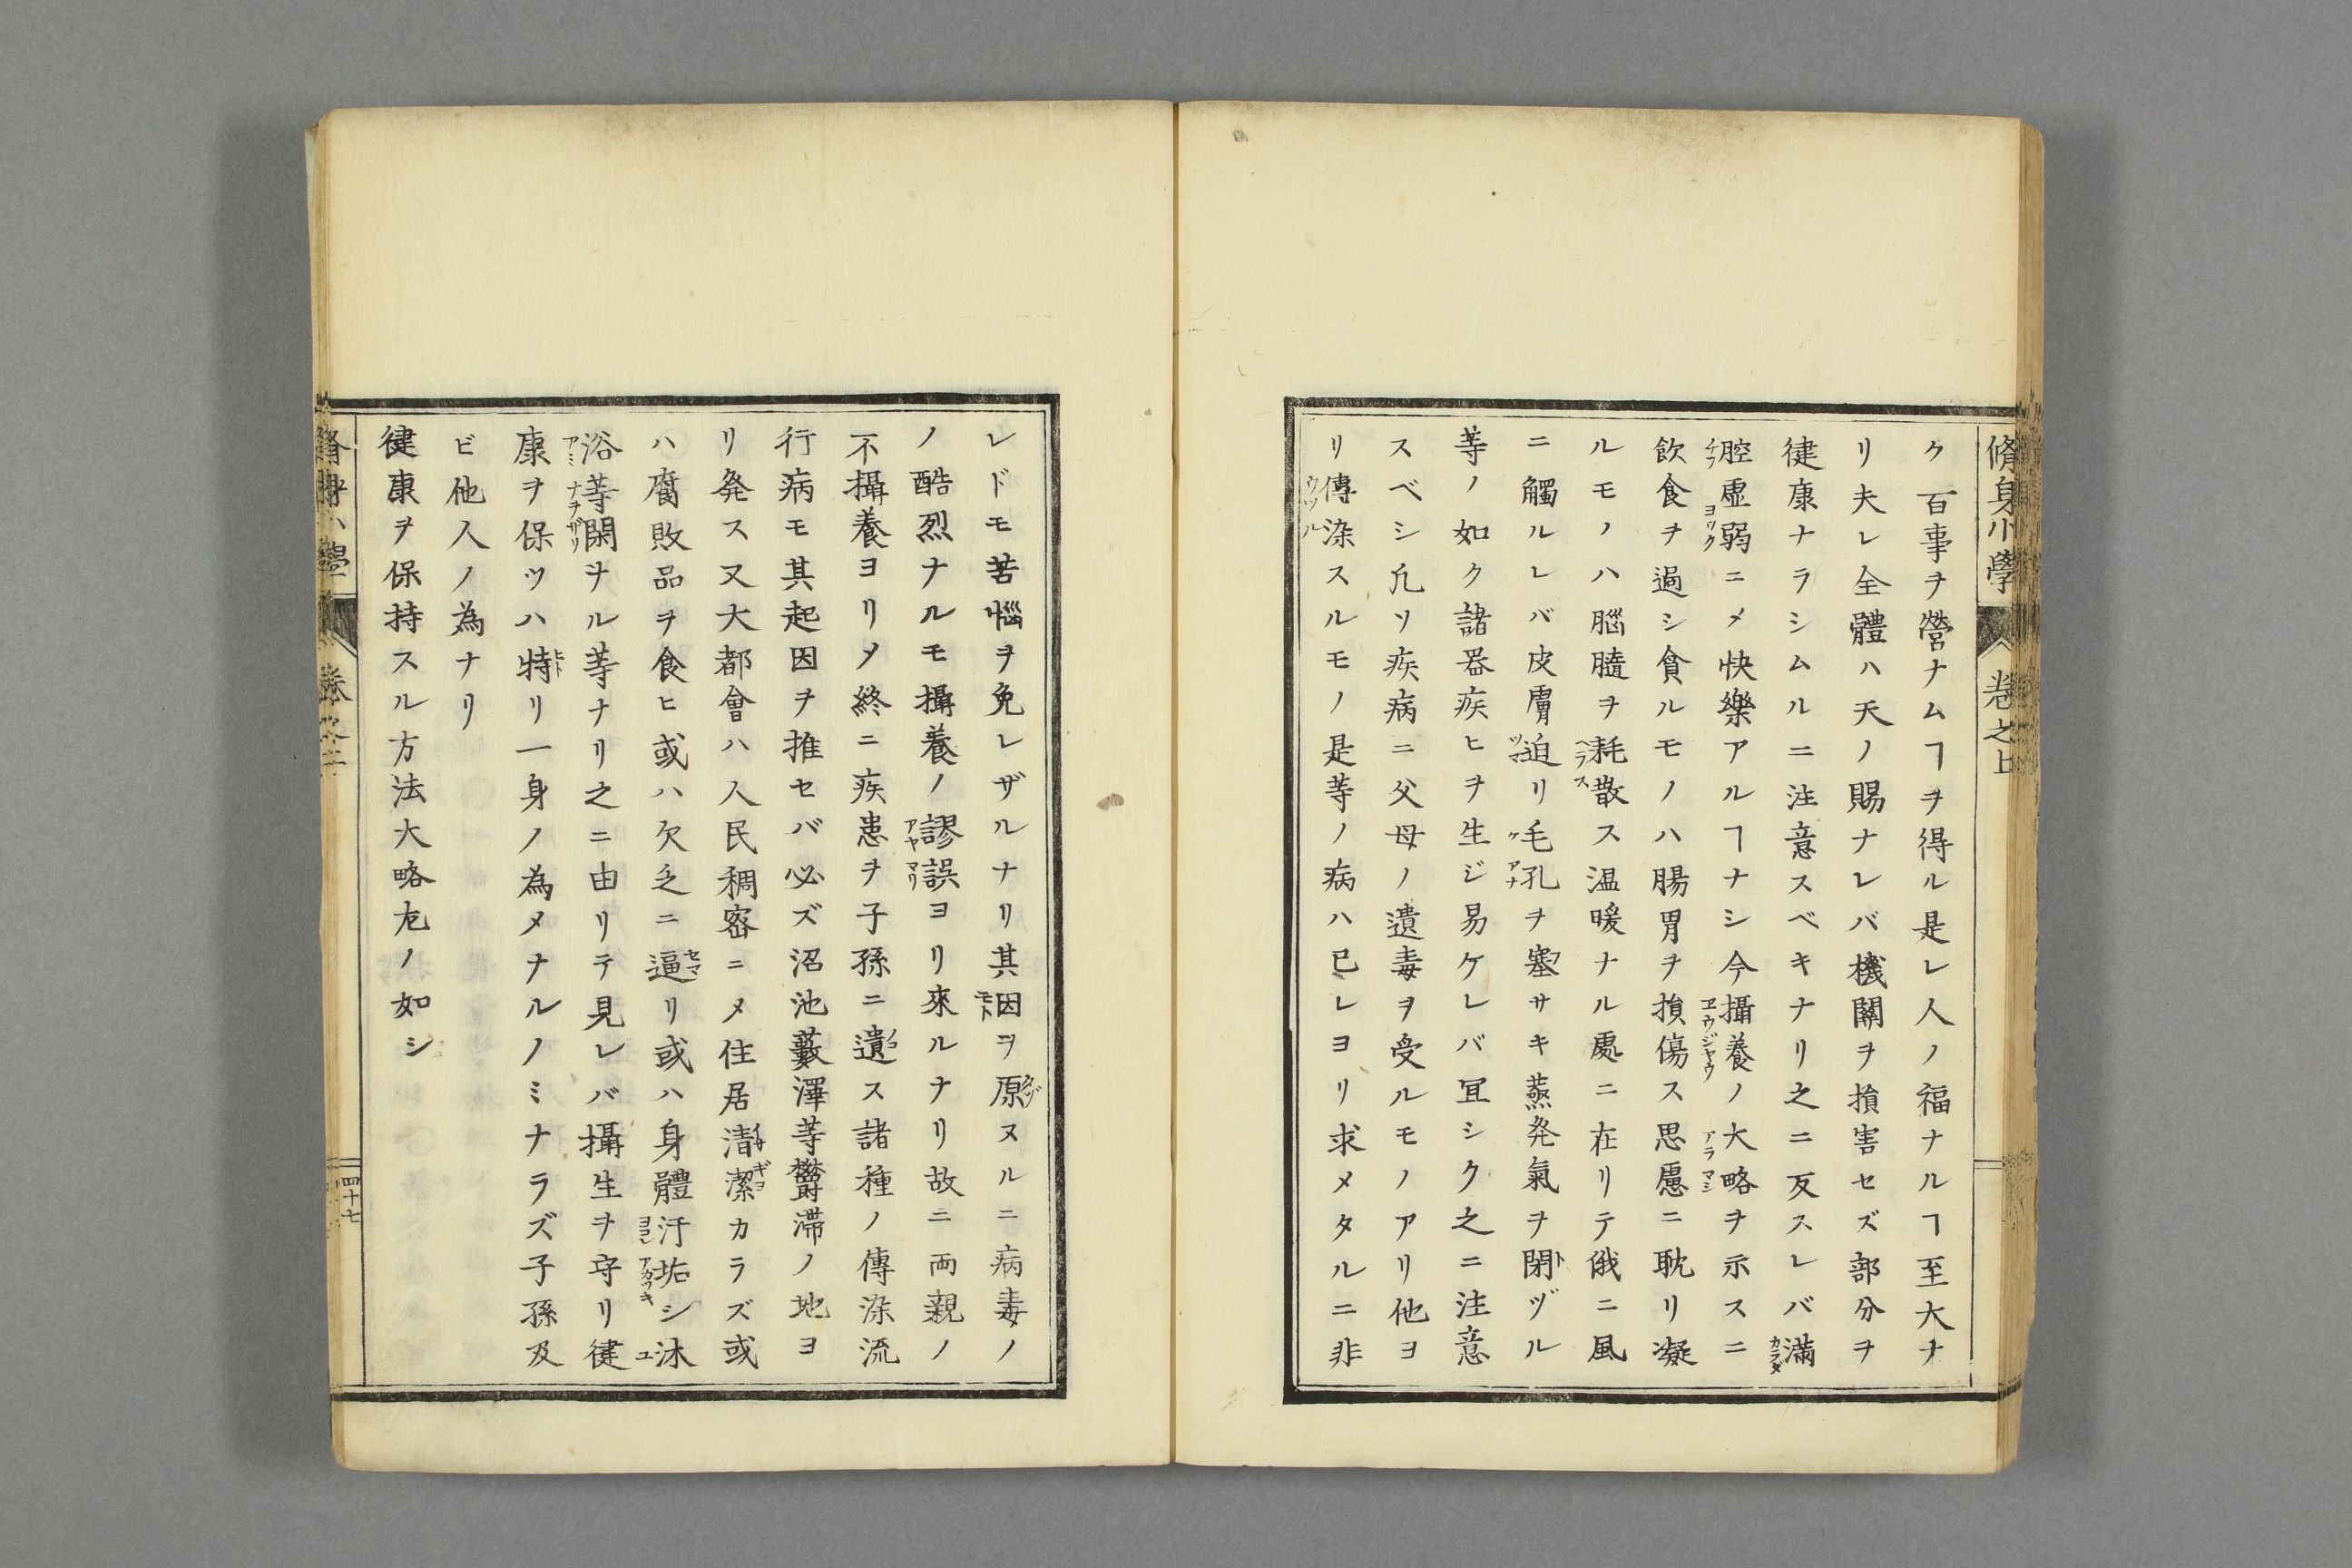 脩身小學 卷之上
ク百事ヲ營ナムヿヲ得ル是レ人ノ福ナルヿ至大ナ
リ夫レ全體ハ天ノ賜ナレバ機關ヲ損害セズ部分ヲ
健康ナラシムルニ注意スベキナリ之ニ反スレバ滿
腔虚弱ニメ快樂アルヿナシ今攝養ノ大略ヲ示スニ
飲食ヲ過シ貪ルモノハ腸胃ヲ損傷ス思慮ニ耽リ凝
ルモノハ腦髓ヲ耗散ス温暖ナル處ニ在リテ俄ニ風
ニ觸ルレバ皮膚迫リ毛孔ヲ塞サキ蒸発氣ヲ閉ヅル
等ノ如ク諸器疾ヒヲ生ジ易ケレバ冝シク之ニ注意
スベシ凡ソ疾病ニ父母ノ遺毒ヲ受ルモノアリ他ヨ
リ傳染スルモノ是等ノ病ハ已レヨリ求メタルニ非
レドモ苦惱ヲ免レザルナリ其因ヲ原ヌルニ病毒ノ
ノ酷烈ナルモ攝養ノ謬誤ヨリ來ルナリ故ニ両親ノ
不攝養ヨリメ終ニ疾患ヲ子孫ニ遺ス諸種ノ傳染流
行病モ其起因ヲ推セバ必ズ沼池藪澤等欝滯ノ地ヨ
リ発ス又大都會ハ人民稠密ニメ住居清潔カラズ或
ハ腐敗品ヲ食ヒ或ハ欠乏ニ逼リ或ハ身體汙垢シ沐
浴等閑ヲナル等ナリ之ニ由リテ見レバ攝生ヲ守リ健
康ヲ保ツハ特リ一身ノ為メナルノミナラズ子孫及
ビ他人ノ為ナリ
健康ヲ保持スル方法大略左ノ如シ
四十七